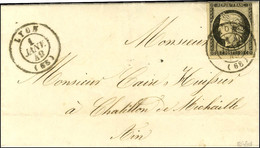 LYON
1
JANV.
49
(68)
Monsieur
Monsieur Caire Huissier
à Chatillon de Michaille
Ain
(68)